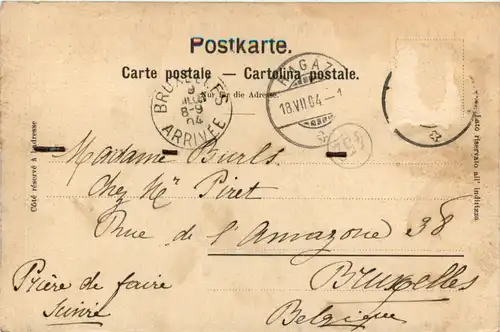 Postkarte.
Carte postale — Cartolina postale.
Nur für die Adresse.
BRUXELLES
8-9
04
ARRIVÉE
RAGAZ
18.VII.04-1
Côté réservé à l'adresse
Lato riservato all' indirizzo
Madame Burls
Chez Mr Piret
Rue de l'Amazone 38
Bruxelles
Belgique
Prière de faire
suivre